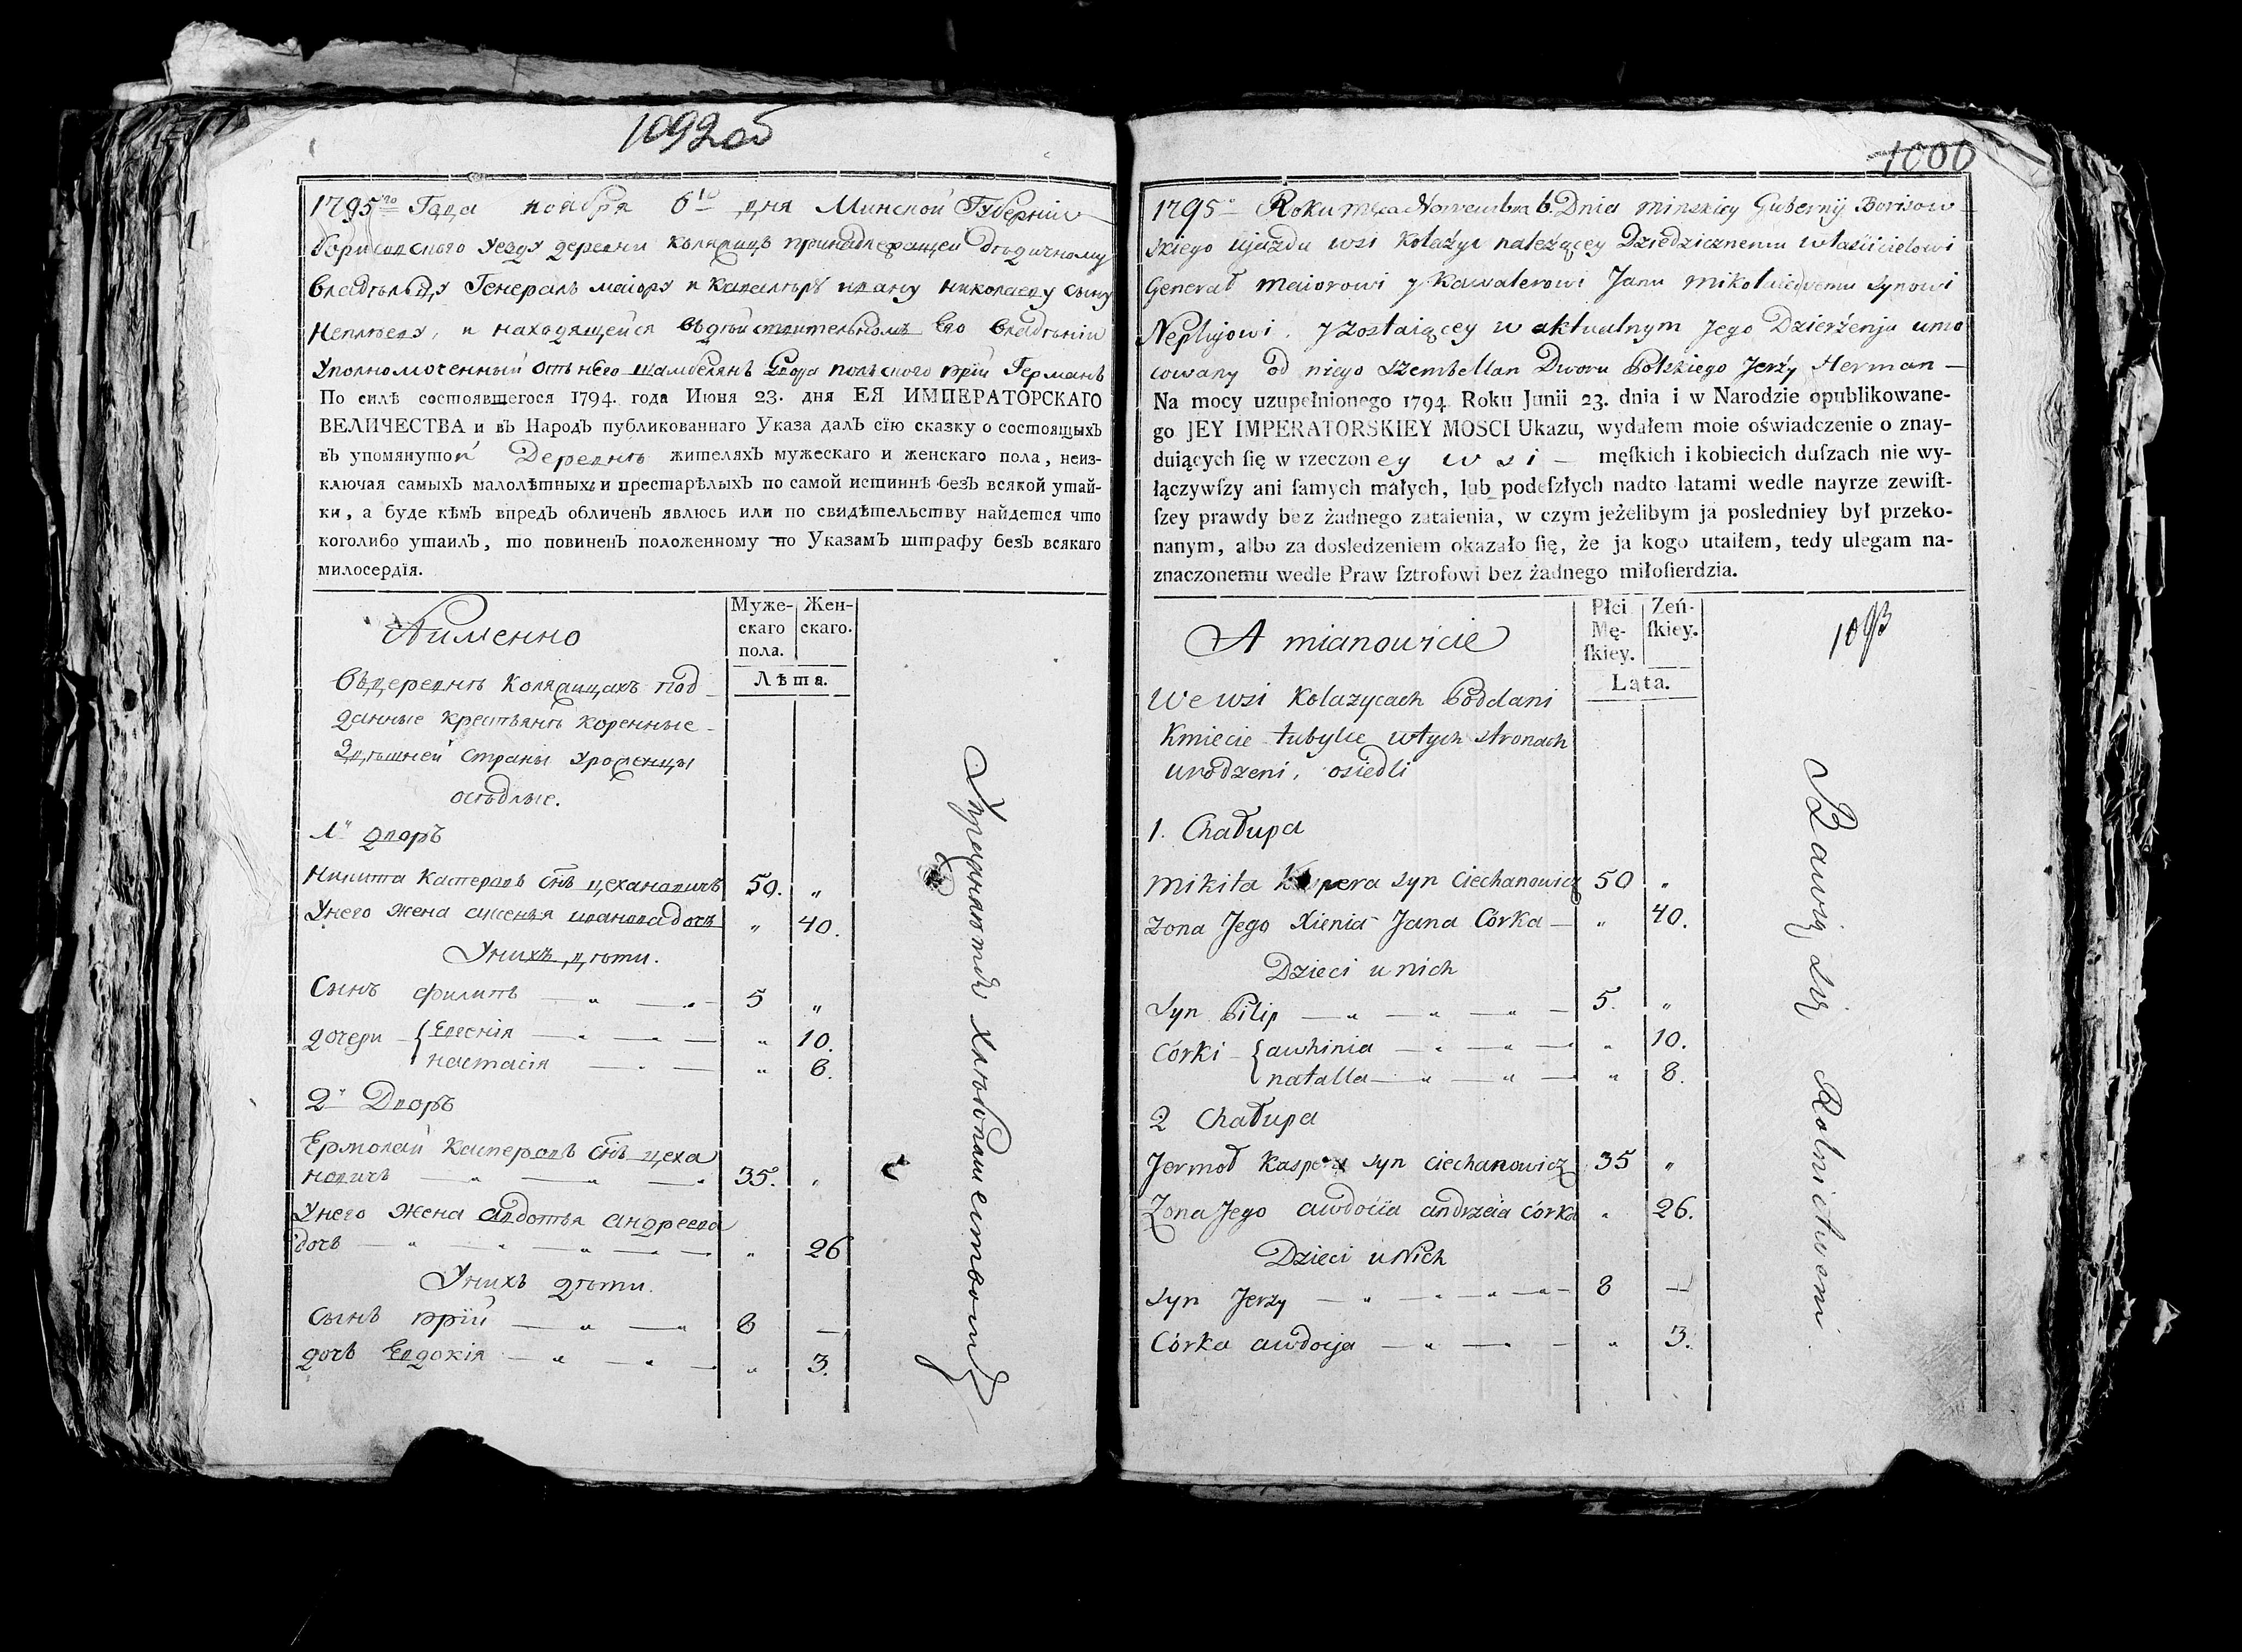 1092об
1795го Года ноября 6го дня Минской Губернии
Борисовского уезду деревни Коляжицъ принадлежащей дѣдичному
владѣльцу Генералъ маіору и Кавалеръ ивану николаеву сыну
Неплюеву, и находящейся въдѣйствительномъ Его владѣніи
Уполномоченный отънего шамбелянъ Двора польского юрій Германъ
По силѣ состоявшегося 1794 года Июня 23. дня ЕЯ ИМПЕРАТОРСКАГО
ВЕЛИЧЕСТВА и въ Народъ публикованнаго Указа далъ сїю сказку о состоящыхъ
въ упомянутой Деревнѣ жителяхъ мужескаго и женскаго пола, неиз-
ключая самыхъ малолѣтныхъ и престарѣлыхъ по самой истиннѣ безъ всякой утай-
ки, а буде кѣмъ впредъ обличенъ явлюсь или по свидѣтельству найдется что
коголибо утаилъ, то повиненъ положенному по Указамъ штрафу безъ всякаго
милосердїя.
Аименно
Муже-скаго пола. Жен-скаго.
Лѣта.
Въдеревнѣ Коляжицахъ под
данные крестьянѣ коренные
Здѣшней страны уроженцы
осѣдлые.
1й дворъ
Никита Касперовъ снъ цехановичъ 50. "
Унего жена аксенья иванова дочь " 40.
Унихъ дѣти.
Сынъ филипъ 5 "
дочери { Евгенія " 10.
настасія " 8.
2й Дворъ
Ермолай Касперовъ снъ цеха
новичъ 35. "
Унего жена авдотья андреева
дочь " 26
Унихъ дѣти.
Сынъ юрій 8 —
дочь Евдокія " 3.
Упражняются хлѣбопашествомъ
1000
1795o Roku Mca Nowembra 6. Dnia minskiey Gubernij Borisow
skiego Ujazdu wsi Kolażyc należącey Dziedzicznemu właścicielowi
Generał Maiorowi y Kawalerowi Janu Mikołaiewemu synowi
Neplujowi. y zostaiącey w aktualnym Jego Dzierżenju umo
cowany od niego szembellan Dworu Polskiego Jerży Herman —
Na mocy uzupełnionego 1794 Roku Junii 23. dnia i w Narodzie opublikowane-
go JEY IMPERATORSKIEY MOSCI Ukazu, wydałem moie oświadczenie o znay-
duiących ſię w rzeczoney wsi — męſkich i kobiecich duſzach nie wy-
łączywſzy ani ſamych małych, lub podeſzłych nadto latami wedle nayrze zewiſt-
ſzey prawdy bez żadnego zataienia, w czym jeżelibym ja posledniey był przeko-
nanym, albo za dosledzeniem okazało ſię, że ja kogo utaiłem, tedy ulegam na-
znaczonemu wedle Praw ſztrofowi bez żadnego miłoſierdzia.
A mianowicie
Płci Mę-ſkiey. Zeń-ſkiey.
Lata.
1093
We wsi Kolazycach Poddani
Kmiecie tubylce wtych stronach
urodzeni, osiedli
1. Chałupa
Mikita Kaspera syn Ciechanowicz 50 "
Zona Jego Xienia Jana Córka — " 40.
Dzieci u nich
Syn Pilip 5. "
Córki { awhinia " 10.
natalla " 8.
2 Chałupa
Jermoł Kaspera syn Ciechanowicz 35 "
Zona Jego awdocia andrzeia Córka " 26.
Dzieci u Nich
Syn Jerzy 8 —
Córka awdocja " 3.
Bawią się Rolnictwem